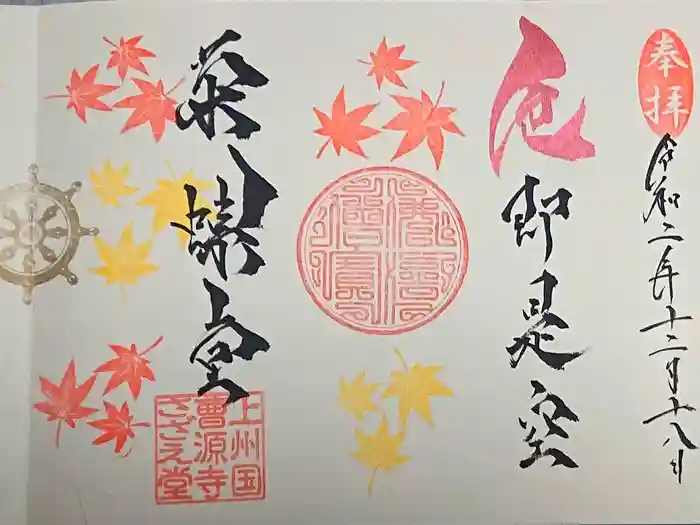 奉拝
令和二年十二月十八日
色即是空
栄螺堂
上州国
曹源寺
さゞえ堂